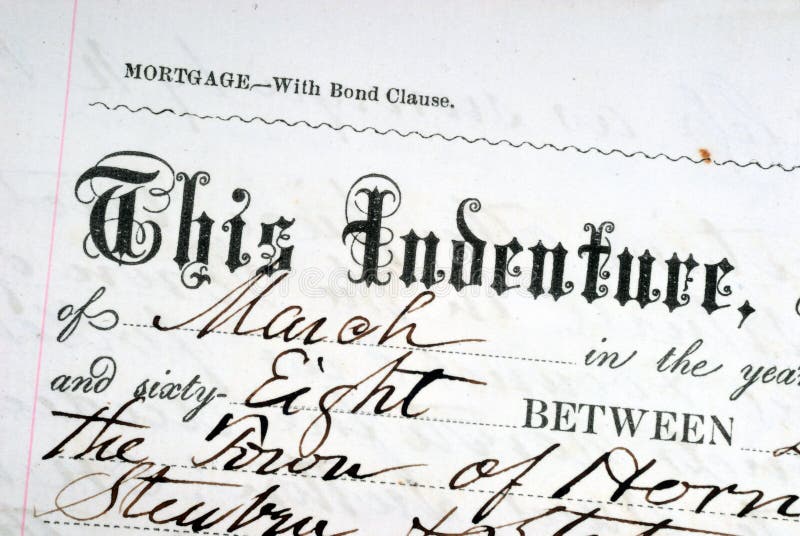 MORTGAGE,—With Bond Clause.
This Indenture,
of March in the year
and sixty-Eight BETWEEN
the Town of Horn
Steuben & Stat